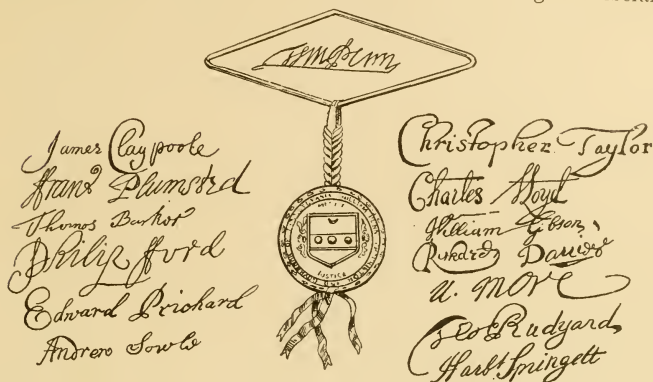 Wm Penn
MERCY
JUSTICE
James Claypoole
Franc Plumsted
Thomas Barker
Philip Ford
Edward Prichard
Andrew Sowle
Christopher Taylor
Charles Lloyd
William Gibson
Richard Davies
N. More
Tho Rudyard
Harbt Springett